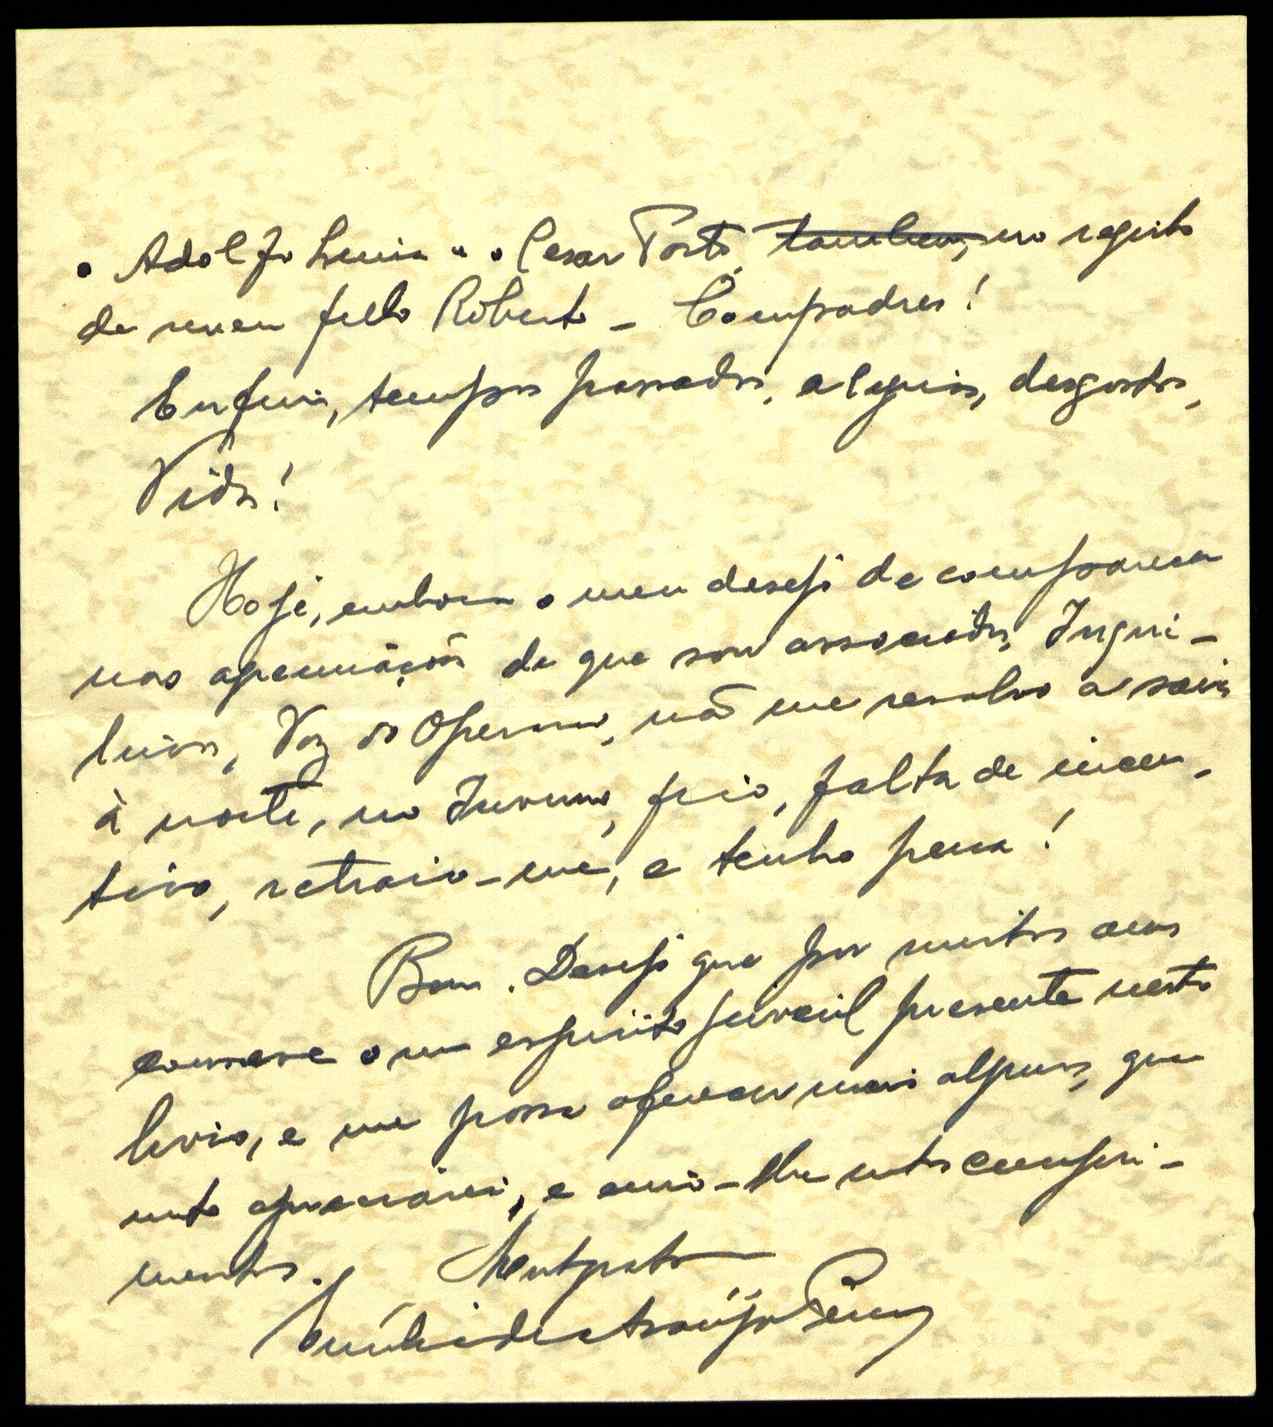 o Adolfo Lima e o Cesar Porto, tambem, no registo
de meu filho Roberto - Compadres!
Enfim, tempos passados, alegrias, desgostos,
Vida!
Hoje, embora o meu desejo de comparecer
nas de que sou associado, Inqui-
linos, Voz do Operario, não me resolvo a sair
à noite, no Inverno, frio, falta de incen-
tivo, retraio-me, e tenho pena!
Bom. Desejo que por muitos anos
conserve o seu espirito juvenil presente neste
livro, e me possa oferecer mais alguns, que
muito apreciarei, e envio-lhe mtos cumpri-
mentos.
Mt grato
de Araújo